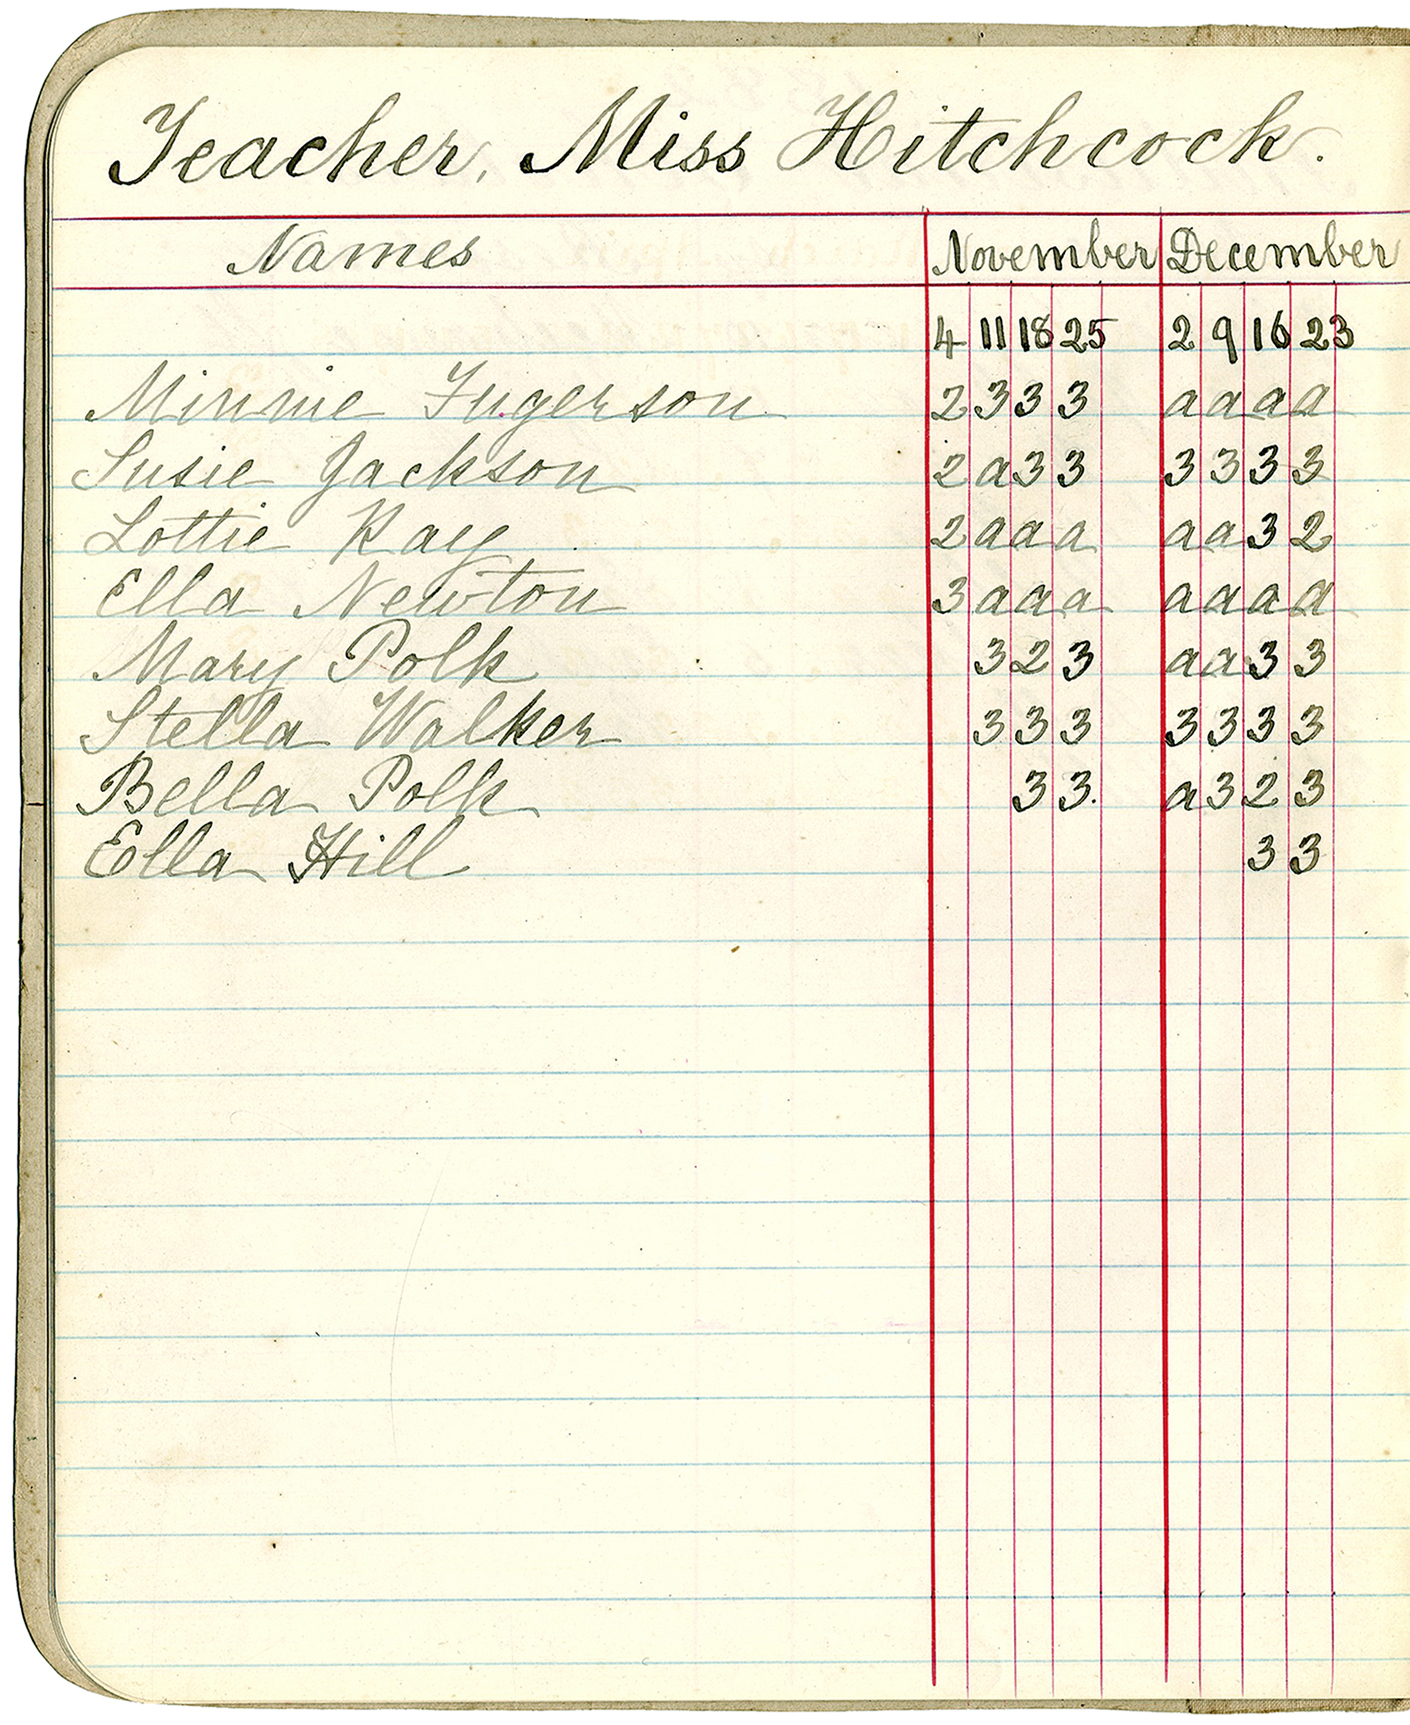 Teacher, Miss Hitchcock.
Names November December
4 11 18 25 2 9 16 23
Minnie Fugerson 2 3 3 3 a a a a
Susie Jackson 2 a 3 3 3 3 3 3
Lottie Kay 2 a a a a a 3 2
Ella Newton 3 a a a a a a a
Mary Polk 3 2 3 a a 3 3
Stella Walker 3 3 3 3 3 3 3
Bella Polk 3 3. a 3 2 3
Ella Hill 3 3